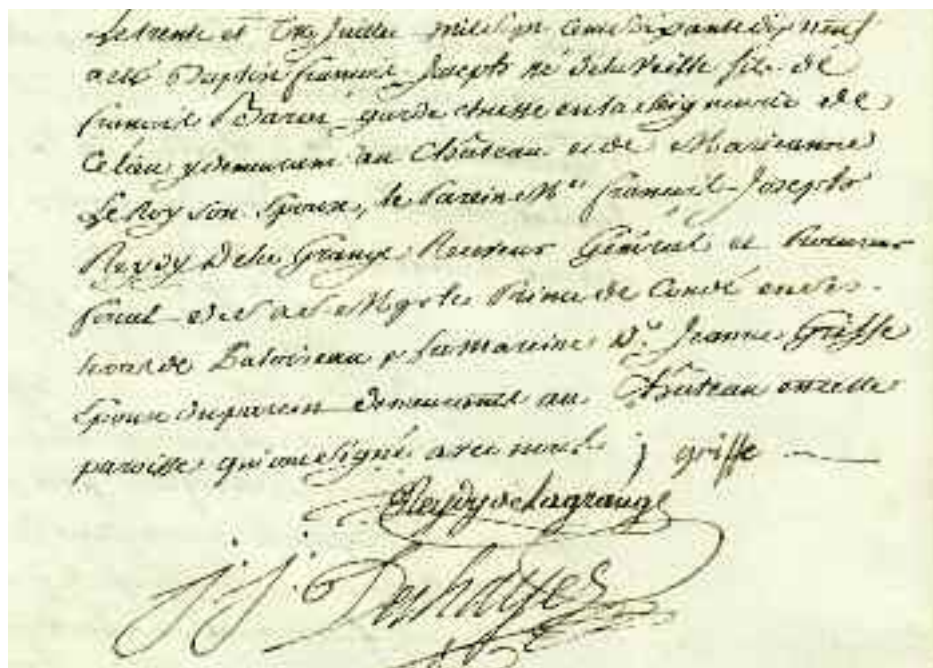 Le trente et un Juillet mil sept cent soixante dix neuf
a été Baptisé françois Joseph né de la veille fils de
françois Baron garde chasse en la seigneurie de
Ce lieu y demeurant au Château et de Marieanne
Le Roy son Epouse, le Parein Mre françois Joseph
Reydy Dela Grange Receveur Général et Procureur
fiscal de S. A. S. Mgr le Prince de Condé
de Palaiseau & la Mareine De. Jeanne Griffe
Epouse du parein demeurants au Château en cette
paroisse qui ont signé avec nous. j griffe
Reydy de la grange
j. j. Deshayes